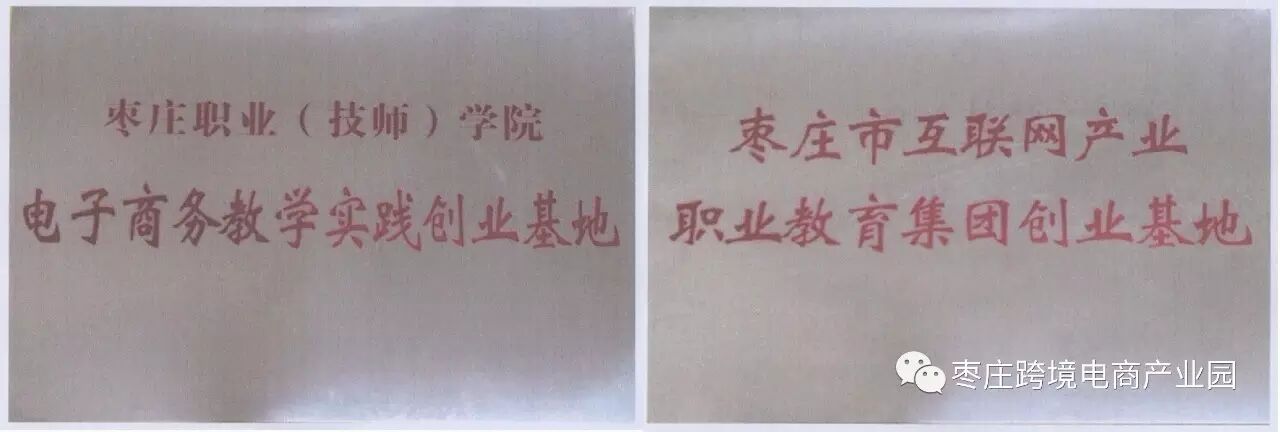 枣庄职业（技师）学院
电子商务教学实践创业基地
枣庄市互联网产业
职业教育集团创业基地
枣庄跨境电商产业园